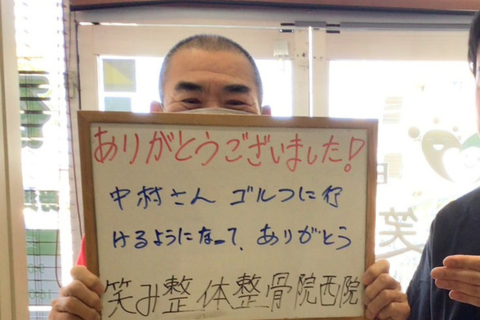 ありがとうございました!
中村さん ゴルフに行
けるようになって、ありがとう
笑み整体整骨院西院
笑